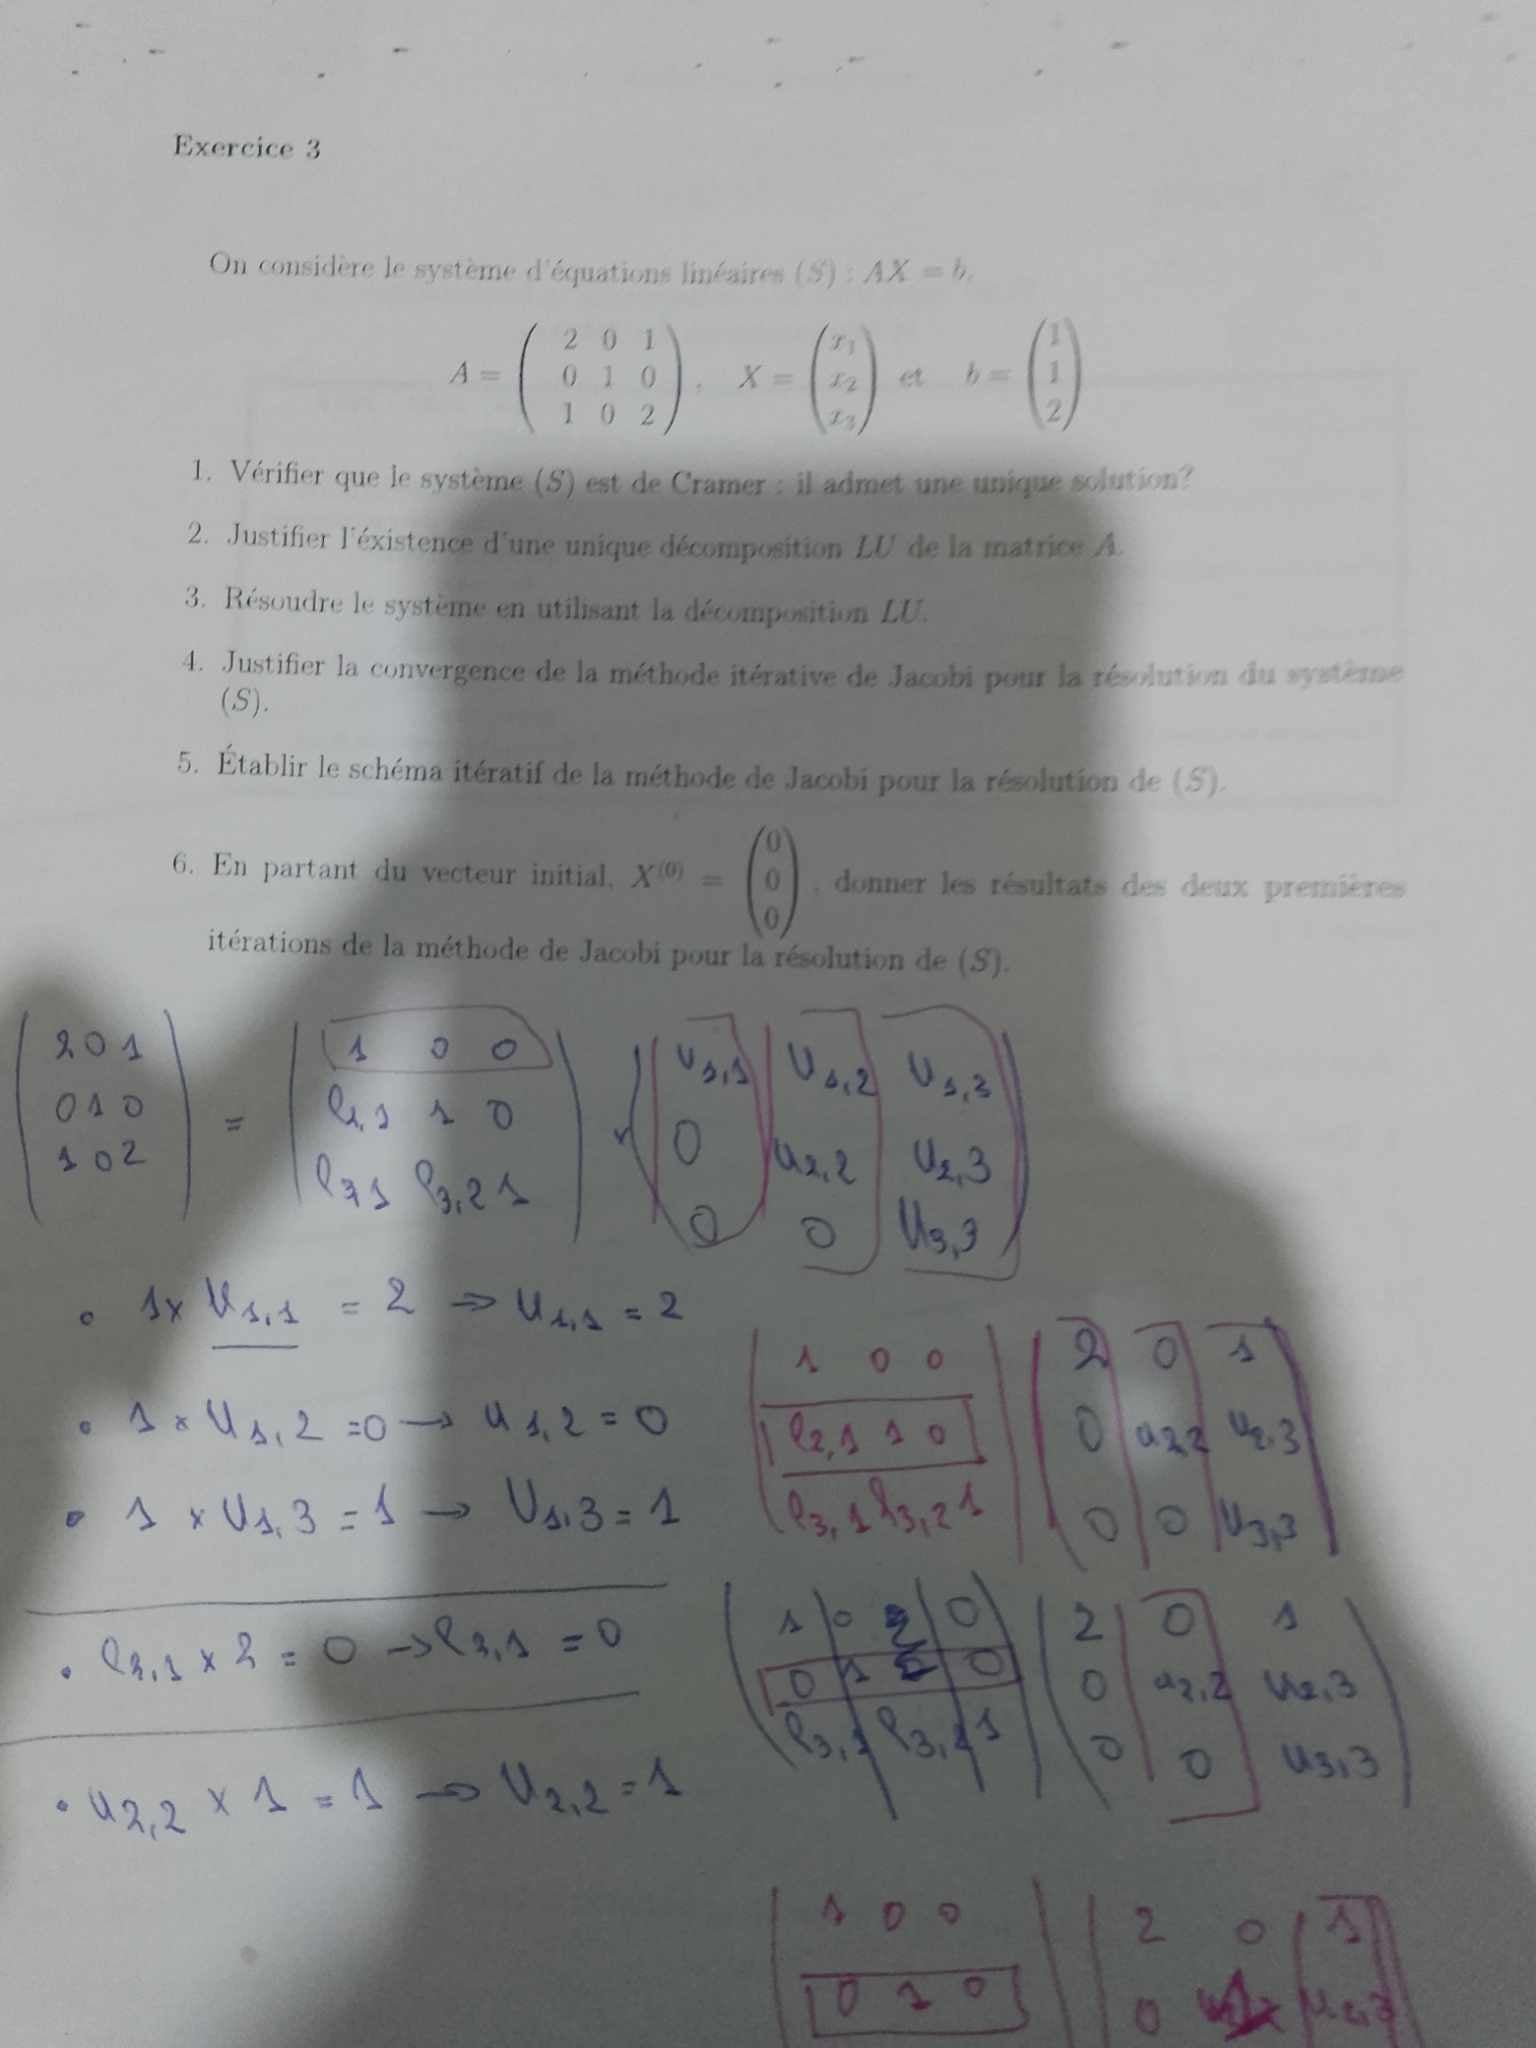 Exercice 3
On considère le système d'équations linéaires (S) : AX = b.
A = ( 2 0 1
0 1 0
1 0 2 ) , X = ( x1
x2
x3 ) et b = ( 1
1
2 )
1. Vérifier que le système (S) est de Cramer : il admet une unique solution?
2. Justifier l'éxistence d'une unique décomposition LU de la matrice A.
3. Résoudre le système en utilisant la décomposition LU.
4. Justifier la convergence de la méthode itérative de Jacobi pour la résolution du système
(S).
5. Établir le schéma itératif de la méthode de Jacobi pour la résolution de (S).
6. En partant du vecteur initial, X(0) = ( 0
0
0 ) , donner les résultats des deux premières
itérations de la méthode de Jacobi pour la résolution de (S).
2 0 1
0 1 0
1 0 2
=
1 0 0
l2,1 1 0
l3,1 l3,2 1
×
u1,1 u1,2 u1,3
0 u2,2 u2,3
0 0 u3,3
• 1 × u1,1 = 2 → u1,1 = 2
• 1 × u1,2 = 0 → u1,2 = 0
• 1 × u1,3 = 1 → u1,3 = 1
1 0 0
l2,1 1 0
l3,1 l3,2 1
2 0 1
0 u2,2 u2,3
0 0 u3,3
• l2,1 × 2 = 0 → l2,1 = 0
• u2,2 × 1 = 1 → u2,2 = 1
1 0 0
0 1 0
l3,1 l3,2 1
2 0 1
0 u2,2 u2,3
0 0 u3,3
1 0 0
0 1 0
2 0 1
0 1 u2,3